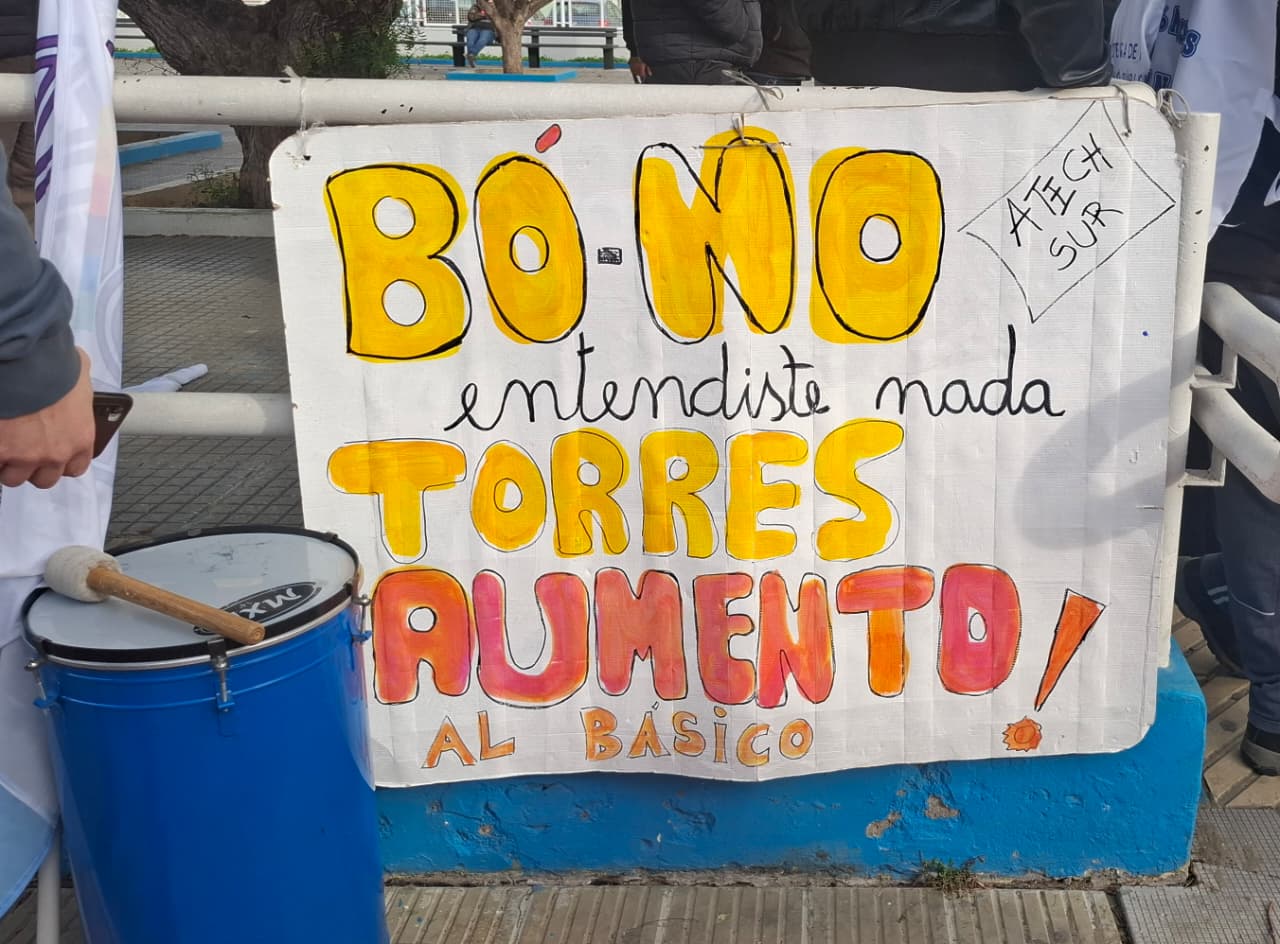 BÓ-NO
ATECH
SUR
entendiste nada
TORRES
AUMENTO!
AL BÁSiCO
MX